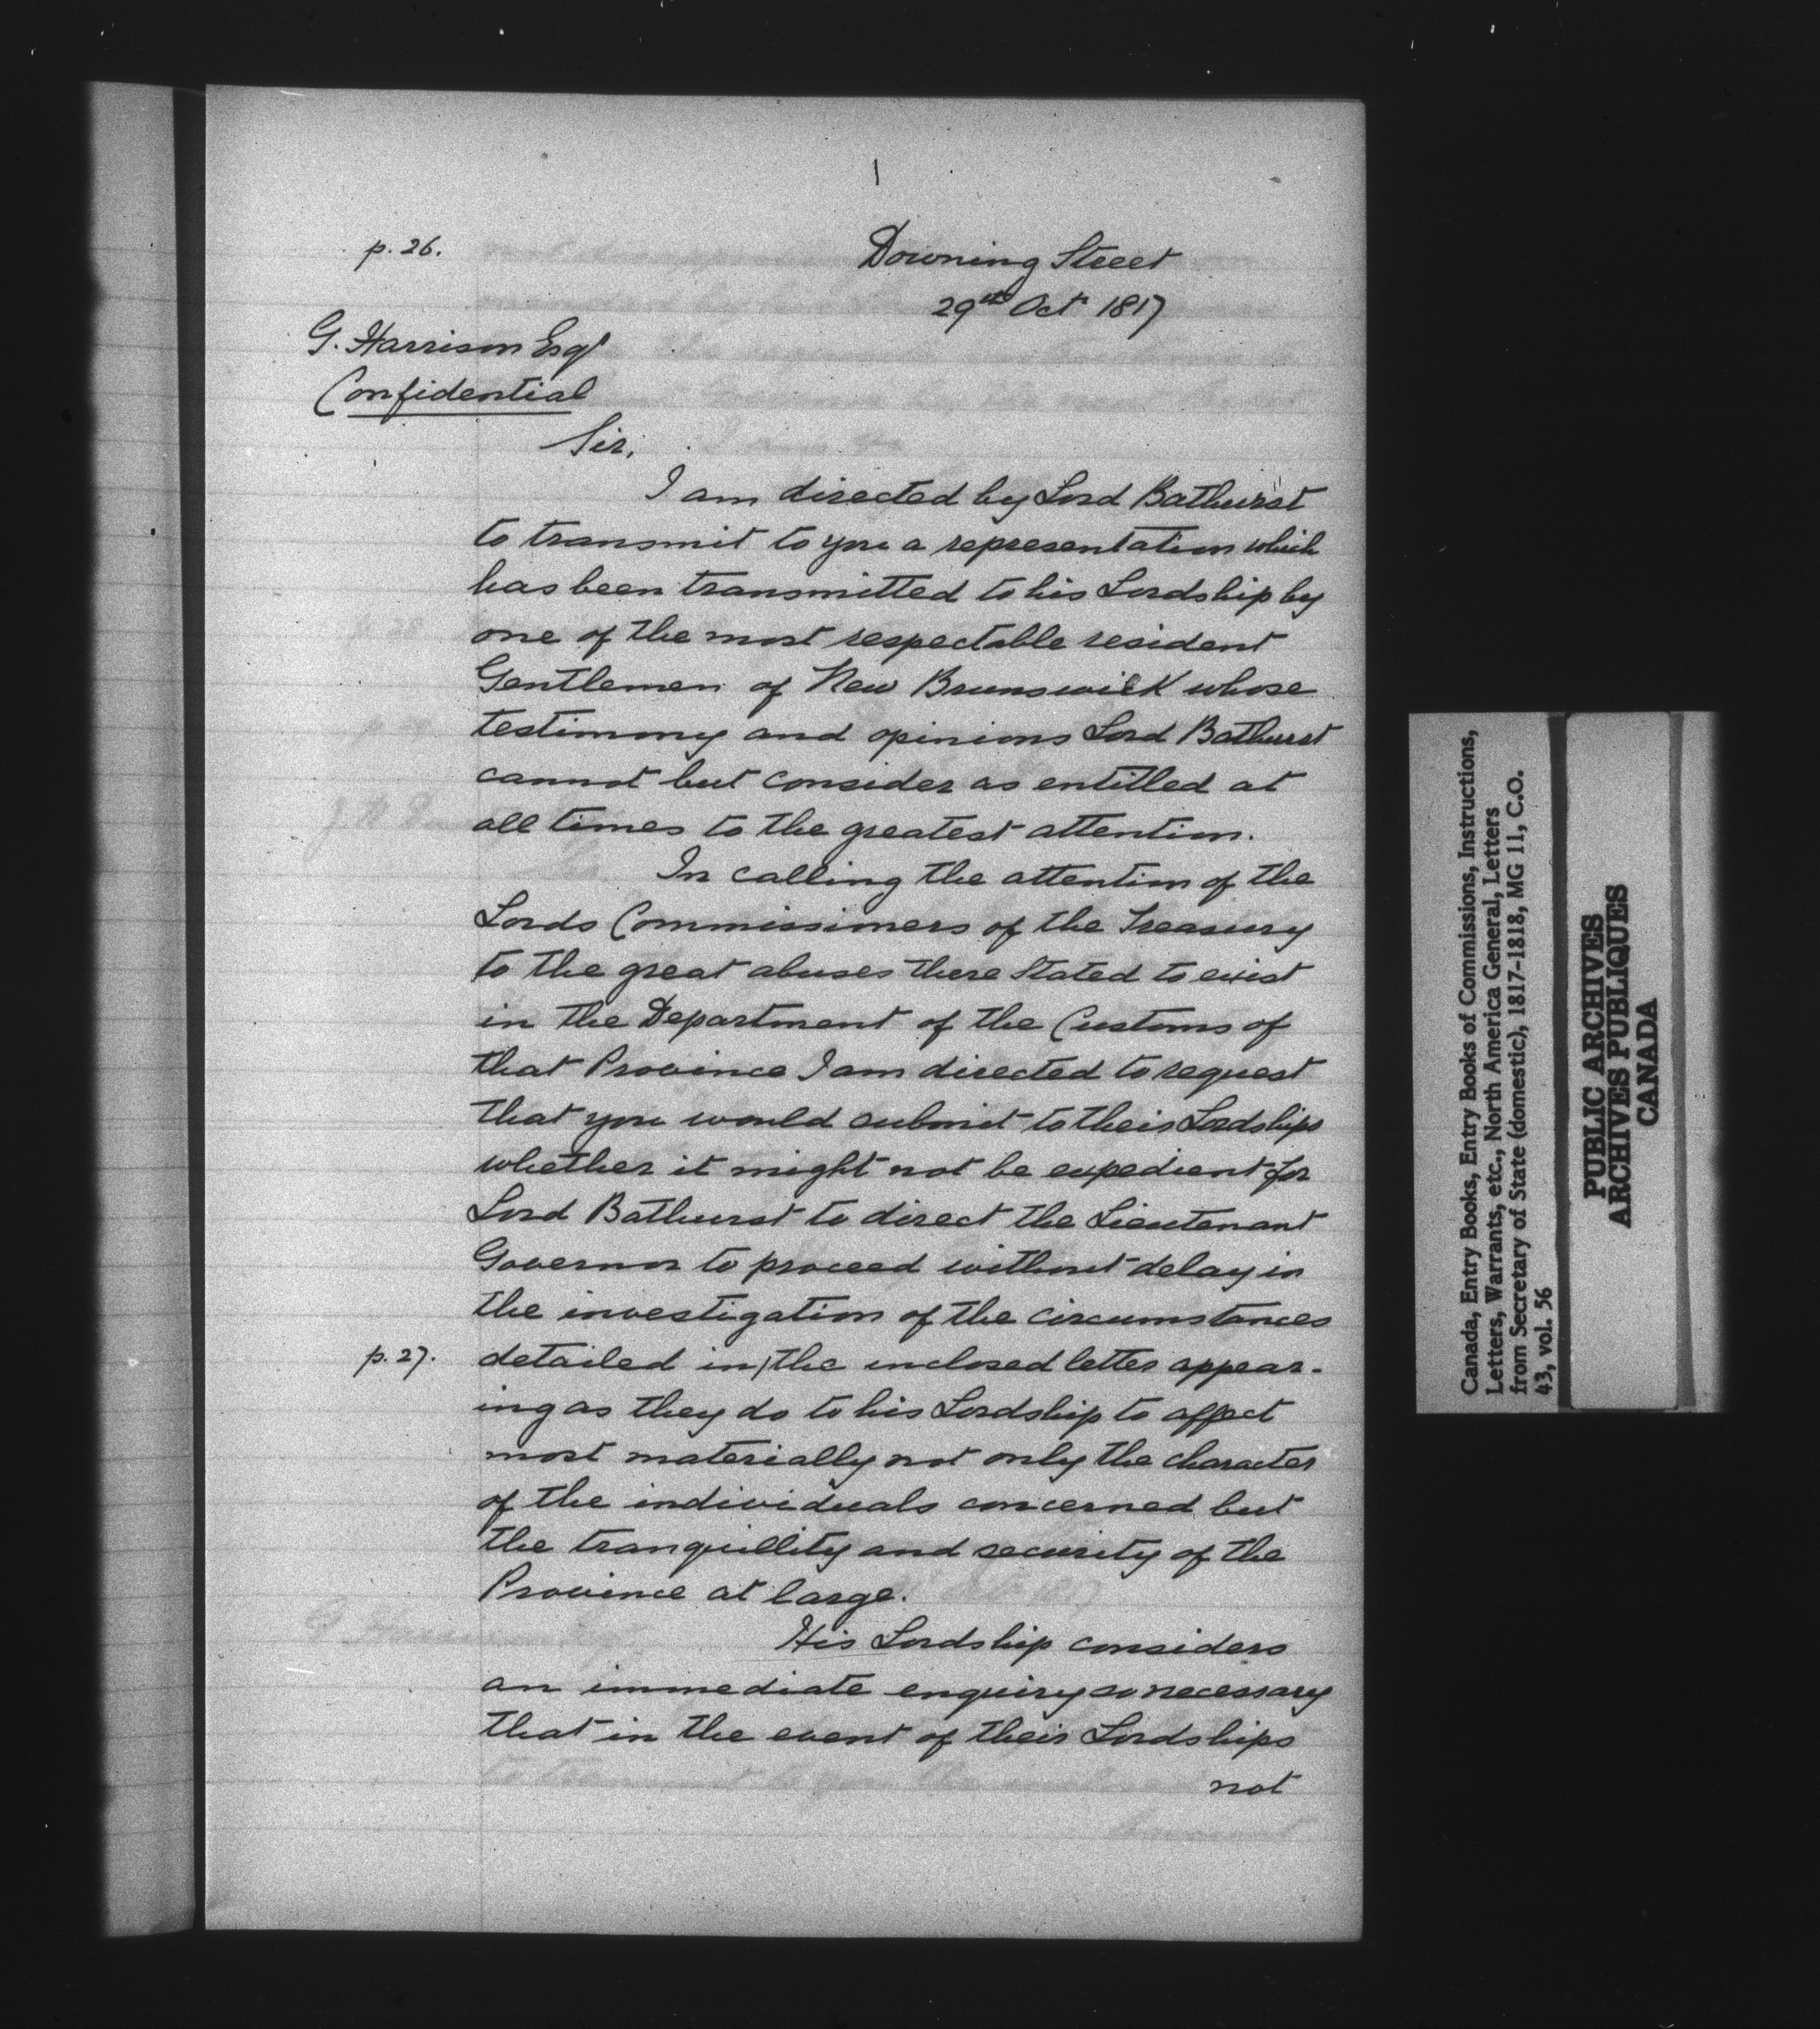 1
p. 26.
Downing Street
29th Oct 1817
G. Harrison Esqr
Confidential
Sir,
I am directed by Lord Bathurst
to transmit to you a representation which
has been transmitted to his Lordship by
one of the most respectable resident
Gentlemen of New Brunswick whose
testimony and opinions Lord Bathurst
cannot but consider as entitled at
all times to the greatest attention.
In calling the attention of the
Lords Commissioners of the Treasury
to the great abuses there stated to exist
in the Department of the Customs of
that Province I am directed to request
that you would submit to their Lordships
whether it might not be expedient for
Lord Bathurst to direct the Lieutenant
Governor to proceed without delay in
the investigation of the circumstances
p. 27.
detailed in/the inclosed letter appear-
ing as they do to his Lordship to affect
most materially not only the character
of the individuals concerned but
the tranquillity and security of the
Province at large.
His Lordship considers
an immediate enquiry so necessary
that in the event of their Lordships
not
Canada, Entry Books, Entry Books of Commissions, Instructions,
Letters, Warrants, etc., North America General, Letters
from Secretary of State (domestic), 1817-1818, MG 11, C.O.
43, vol. 56
PUBLIC ARCHIVES
ARCHIVES PUBLIQUES
CANADA